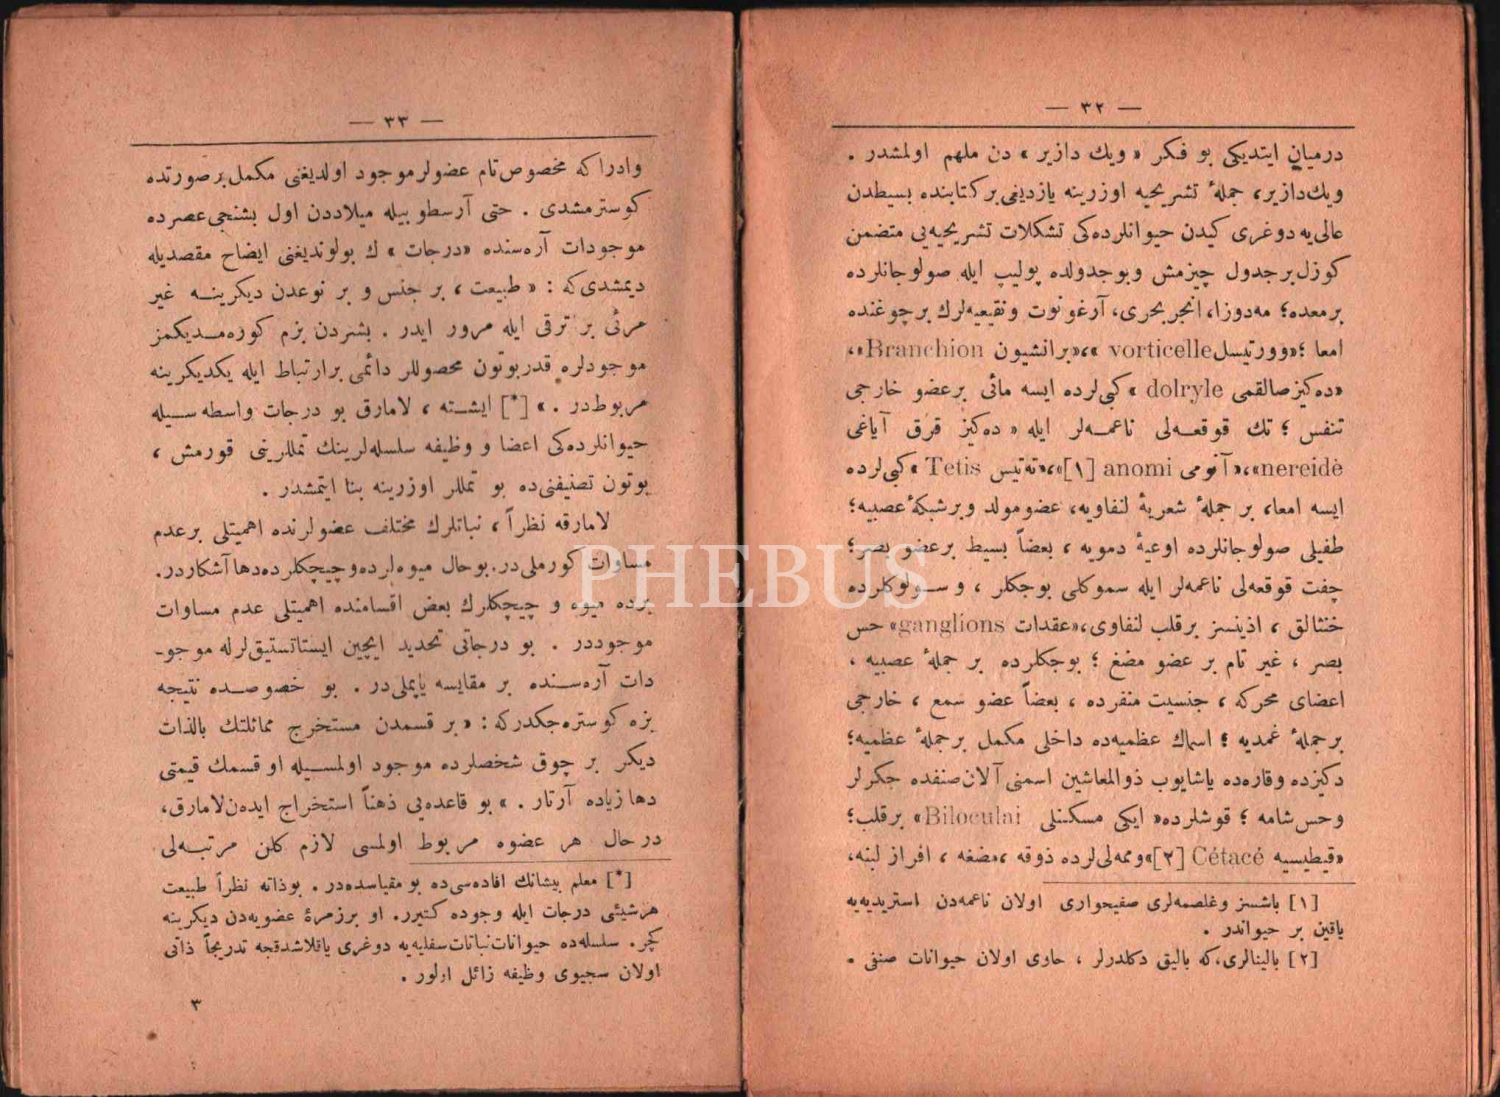 — ٣٢ —
درميان ايتديكى بو فكر « ويك دازير » دن ملهم اولمشدر .
ويك‌دازير، جملهٔ تشريحيه اوزرينه يازديغى بر كتابنده بسيطدن
عالى‌يه دوغرى كيدن حيوانلرده‌كى تشكلات تشريحيه‌يى متضمن
كوزل بر جدول چيزمش وبوجدولده پوليپ ايله صولوجانلرده
برمعده؛ مه‌دوزا، انجر بحرى، آرغونوت ونقيعيه‌لرك بر چوغنده
امعا ؛ «وورتيسل vorticelle »، «برانشيون Branchion»،
«ده‌كيز صالقمى dolryle » كبى‌لرده ايسه مائى برعضو خارجى
تنفس ؛ تك قوقعه‌لى ناعمه‌لر ايله « ده‌كيز قرق آياغى
nereidè»، «آنومى anomi [١]»، «ته‌تيس Tetis » كبى‌لرده
ايسه امعا، بر جملهٔ شعريهٔ لنفاويه، عضومولد وبرشبكهٔ عصبيه؛
طفيلى صولوجانلرده اوعيهٔ دمويه ، بعضاً بسيط برعضو بصر؛
چفت قوقعه‌لى ناعمه‌لر ايله سموكلى بوجكلر ، وسولوكلرده
خنثالق ، اذينسز برقلب لنفاوى، «عقدات ganglions» حس
بصر ، غير تام بر عضو مضغ ؛ بوجكلرده بر جملهٔ عصبيه ،
اعضاى محركه ، جنسيت منفرده ، بعضاً عضو سمع ، خارجى
برجملهٔ غمديه ؛ اسماك عظميه‌ده داخلى مكمل برجملهٔ عظميه؛
دكيزده وقاره‌ده ياشايوب ذوالمعاشين اسمنى آلان صنفده جكرلر
وحس‌شامه ؛ قوشلرده « ايكى مسكنلى Biloculai» برقلب؛
«قيطيسيه Cétacé [٢]» وممه‌لى‌لرده ذوقه ، مضغه ، افراز لبنه،
[١] باشسز وغلصمه‌لرى صفيحوارى اولان ناعمه‌دن استريديه‌يه
ياقين بر حيواندر .
[٢] بالينالرى، كه باليق دكلدرلر ، حاوى اولان حيوانات صنفى .
— ٣٣ —
وادراكه مخصوص تام عضولر موجود اولديغنى مكمل بر صورتده
كوسترمشدى . حتى آرسطو بيله ميلاددن اول بشنجى عصرده
موجودات آره‌سنده «درجات» ك بولونديغنى ايضاح مقصديله
ديمشدى‌كه : « طبيعت ، بر جنس و بر نوعدن ديكرينه غير
مرئى بر ترقى ايله مرور ايدر . بشردن بزم كوره‌مديكمز
موجودلره قدر بوتون محصوللر دائمى برارتباط ايله يكديكرينه
مربوطدر . » [*] ايشته ، لامارق بو درجات واسطه‌سيله
حيوانلرده‌كى اعضا و وظيفه سلسله‌لرينك تمللرينى قورمش ،
بوتون تصنيفنى‌ده بو تمللر اوزرينه بنا ايتمشدر .
لامارقه نظراً ، نباتلرك مختلف عضولرنده اهميتلى برعدم
مساوات كورملى‌در. بوحال ميوه‌لرده وچيچكلرده‌دها آشكاردر.
برده ميوه و چيچكلرك بعض اقسامنده اهميتلى عدم مساوات
موجوددر . بو درجاتى تحديد ايچين ايستاتستيق‌لرله موجو-
دات آره‌سنده بر مقايسه ياپملى‌در . بو خصوصده نتيجه
بزه كوستره‌جكدركه : « بر قسمدن مستخرج مماثلتك بالذات
ديكر بر چوق شخصلرده موجود اولمسيله او قسمك قيمتى
دها زياده آرتار . » بو قاعده‌يى ذهناً استخراج ايدەن‌لامارق،
درحال هر عضوه مربوط اولمسى لازم كلن مرتبه‌لى
[*] معلم بيشانك افاده‌سى‌ده بو مقياسده‌در . بوذاته نظراً طبيعت
هرشيئى درجات ايله وجوده كتيرر. او برزمرهٔ عضويه‌دن ديكرينه
كچر. سلسله‌ده حيوانات نباتات‌سفليه‌يه دوغرى ياقلاشدقجه تدريجاً ذاتى
اولان سجيوى وظيفه زائل اولور .
٣
PHEBUS